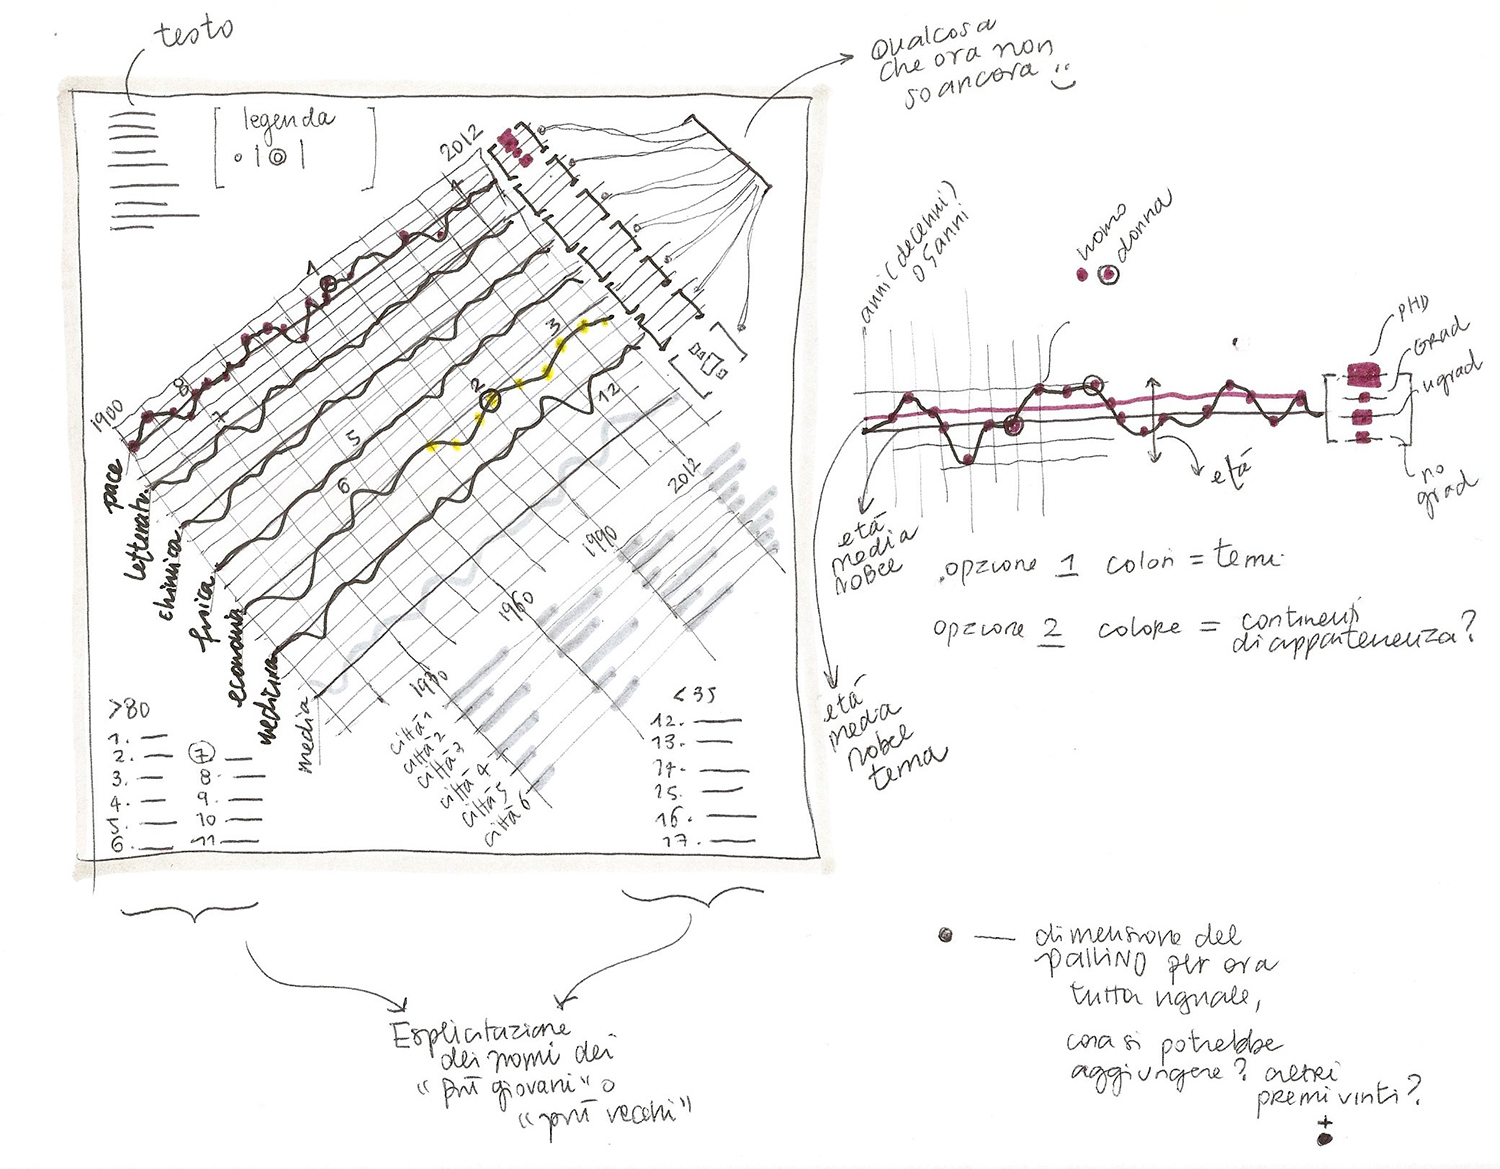 testo
Qualcosa
che ora non
so ancora
legenda
2012
1900
1
8
7
1
5
6
2
3
12
pace
letteratu.
chimica
fisica
economia
medicina
media
2012
1990
1960
1930
città 1
città 2
città 3
città 4
città 5
città 6
>80
1.
2.
3.
4.
5.
6.
7
8.
9.
10
11
<35
12.
13.
14.
15.
16.
17.
Esplicitazione
dei nomi dei
"più giovani" o
"più vecchi"
anni (decenni)
o 5 anni
uomo
donna
PHD
GRAD
ugrad
no
grad
età
età
media
NOBEL
età
media
nobel
tema
.opzione 1 colori = temi.
opzione 2 colore = continenti
di appartenenza?
dimensione del
pallino per ora
tutta uguale,
cosa si potrebbe
aggiungere? altri
premi vinti?
+